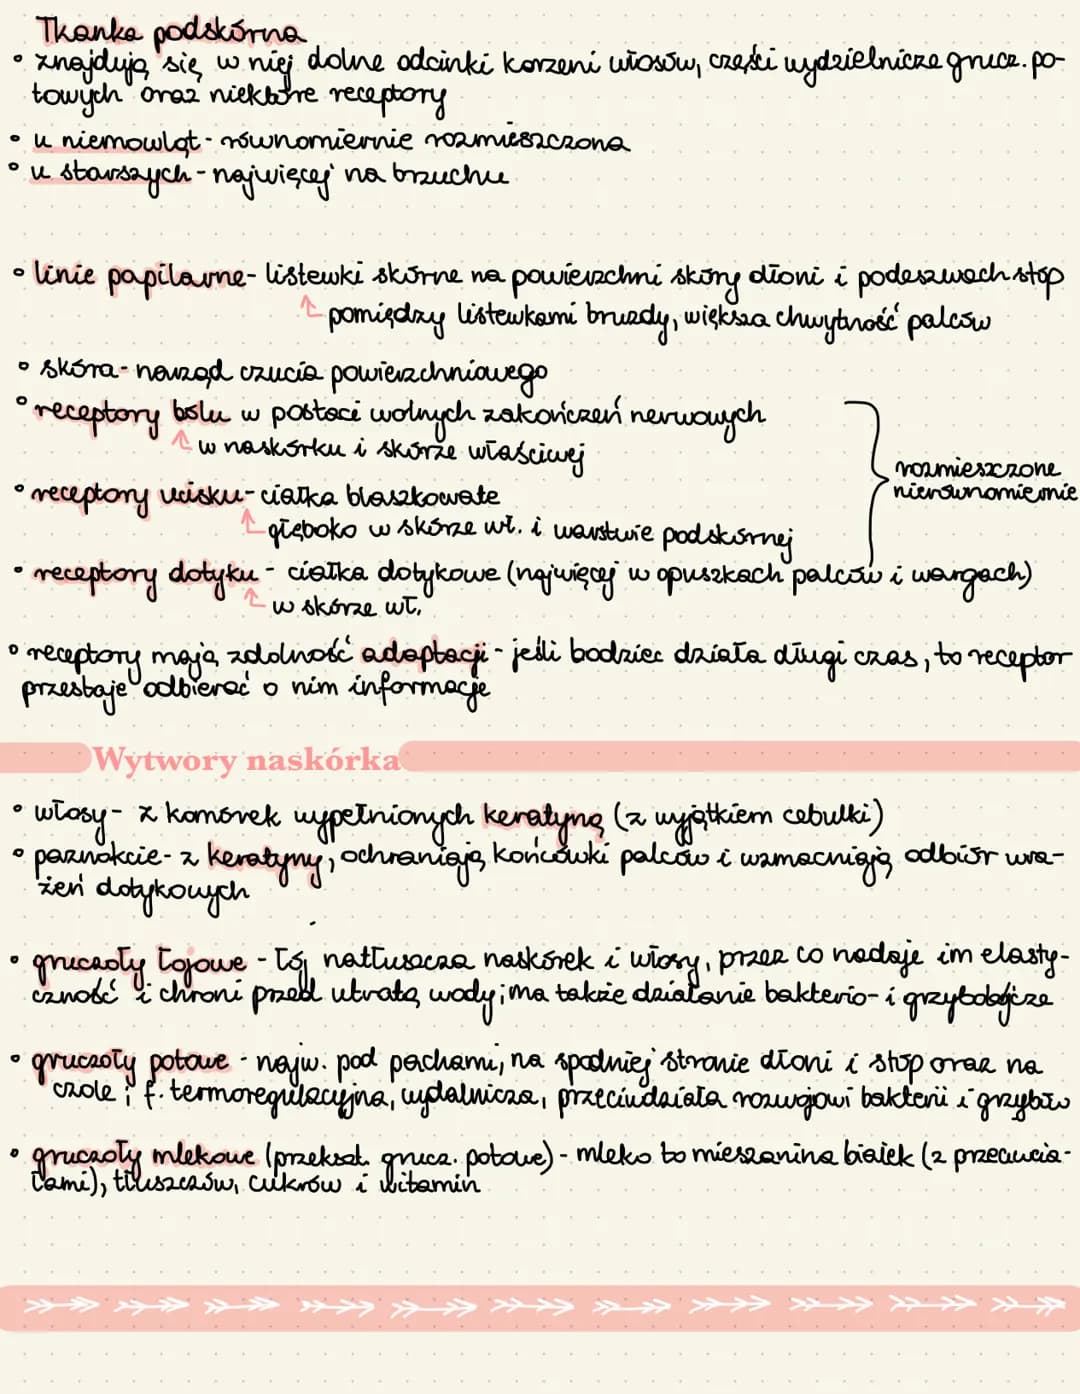 Tkanka podskórna
• znajdują się w niej dolne odcinki korzeni włosów, części wydzielnicze grucz. po-
towych oraz niektóre receptory
• u niemowląt - równomiernie rozmieszczona
• u starszych - najwięcej na brzuchu
• linie papilarne - listewki skórne na powierzchni skóry dłoni i podeszwach stóp
↑ pomiędzy listewkami bruzdy, większa chwytność palców
• skóra - narząd czucia powierzchniowego
• receptory bólu w postaci wolnych zakończeń nerwowych
↑ w naskórku i skórze właściwej
rozmieszczone
nierównomiernie
• receptory ucisku - ciałka blaszkowate
↑ głęboko w skórze wł. i warstwie podskórnej
• receptory dotyku - ciałka dotykowe (najwięcej w opuszkach palców i wargach)
↑ w skórze wł.
• receptory mają zdolność adaptacji - jeśli bodziec działa długi czas, to receptor
przestaje odbierać o nim informacje
Wytwory naskórka
• włosy - z komórek wypełnionych keratyną (z wyjątkiem cebulki)
• paznokcie - z keratyny, ochraniają końcówki palców i wzmacniają odbiór wra-
żeń dotykowych
• gruczoły łojowe - łój natłuszcza naskórek i włosy, przez co nadaje im elasty-
czność i chroni przed utratą wody; ma także działanie bakterio- i grzybobójcze
• gruczoły potowe - najw. pod pachami, na spodniej stronie dłoni i stóp oraz na
czole; f. termoregulacyjna, wydalnicza, przeciwdziała rozwojowi bakterii i grzybów
• gruczoły mlekowe (przekszt. grucz. potowe) - mleko to mieszanina białek (z przeciwcia-
łami), tłuszczów, cukrów i witamin